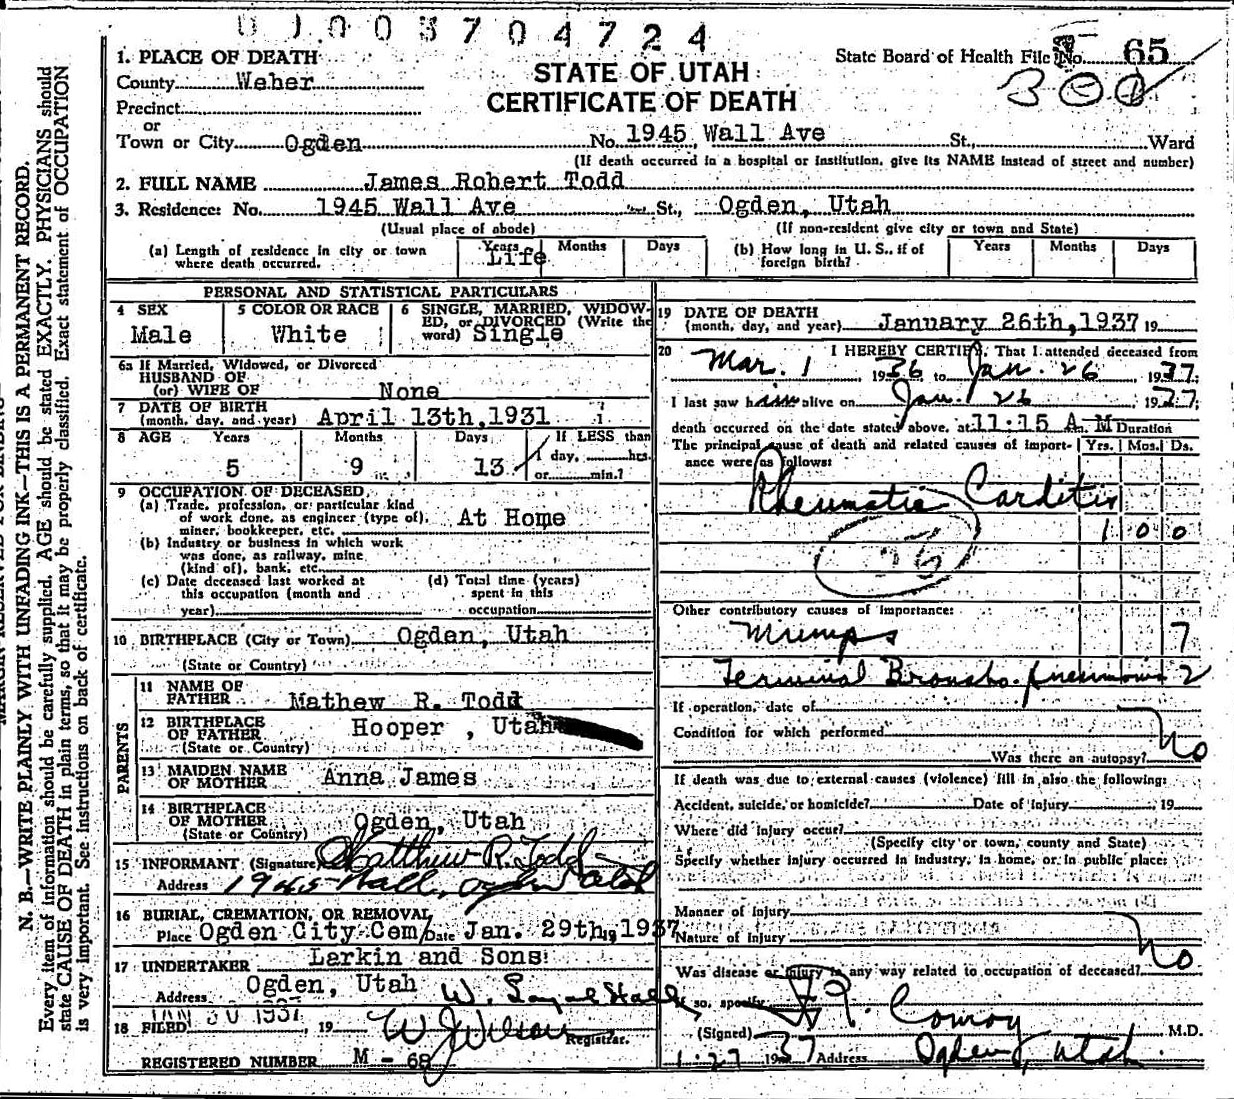 0 1 0 0 3 7 0 4 7 2 4
1. PLACE OF DEATH
State Board of Health File No. 65
County Weber
STATE OF UTAH
300
Precinct
CERTIFICATE OF DEATH
or
Town or City Ogden No. 1945 Wall Ave St., Ward
(If death occurred in a hospital or institution, give its NAME instead of street and number)
2. FULL NAME James Robert Todd
3. Residence: No. 1945 Wall Ave St., Ogden, Utah
(Usual place of abode) (If non-resident give city or town and State)
(a) Length of residence in city or town where death occurred. Years Life Months Days
(b) How long in U. S., if of foreign birth? Years Months Days
PERSONAL AND STATISTICAL PARTICULARS
4 SEX Male
5 COLOR OR RACE White
6 SINGLE, MARRIED, WIDOW-
ED, or DIVORCED (Write the
word) Single
6a If Married, Widowed, or Divorced
HUSBAND OF
(or) WIFE OF None
7 DATE OF BIRTH
(month, day, and year) April 13th, 1931
8 AGE Years Months Days If LESS than
1 day, hrs.
5 9 13 or min.?
9 OCCUPATION OF DECEASED
(a) Trade, profession, or particular kind
of work done, as engineer (type of), At Home
miner, bookkeeper, etc.
(b) Industry or business in which work
was done, as railway, mine
(kind of), bank, etc.
(c) Date deceased last worked at
this occupation (month and
year)
(d) Total time (years)
spent in this
occupation
10 BIRTHPLACE (City or Town) Ogden, Utah
(State or Country)
PARENTS
11 NAME OF
FATHER Mathew R. Todd
12 BIRTHPLACE
OF FATHER Hooper , Utah
(State or Country)
13 MAIDEN NAME
OF MOTHER Anna James
14 BIRTHPLACE
OF MOTHER Ogden, Utah
(State or Country)
15 INFORMANT (Signature) Matthew R. Todd
Address 1945 Wall, Ogden Utah
16 BURIAL, CREMATION, OR REMOVAL
Place Ogden City Cem Date Jan. 29th, 1937
17 UNDERTAKER Larkin and Sons
Address Ogden, Utah
JAN 30 1937
18 FILED , 19
Registrar.
REGISTERED NUMBER M - 68
19 DATE OF DEATH
(month, day, and year) January 26th, 1937 19
20 I HEREBY CERTIFY, That I attended deceased from
Mar. 1 , 1936 to Jan. 26 , 1937;
I last saw him alive on Jan. 26 , 1937;
death occurred on the date stated above, at 11:15 A. M Duration
The principal cause of death and related causes of import-
ance were as follows: Yrs. Mos. Ds.
Rheumatic Carditis
1 0 0
Other contributory causes of importance:
Mumps 7
Terminal Broncho-pneumonia 2
If operation, date of
Condition for which performed
Was there an autopsy? No
If death was due to external causes (violence) fill in also the following:
Accident, suicide, or homicide? Date of Injury , 19
Where did injury occur?
(Specify city or town, county and State)
Specify whether injury occurred in industry, in home, or in public place:
Manner of Injury
Nature of Injury
Was disease or injury in any way related to occupation of deceased? No
If so, specify
(Signed) Conroy M.D.
1-27 1937 Address Ogden, Utah
N. B.—WRITE PLAINLY WITH UNFADING INK—THIS IS A PERMANENT RECORD.
Every item of information should be carefully supplied. AGE should be stated EXACTLY. PHYSICIANS should
state CAUSE OF DEATH in plain terms, so that it may be properly classified. Exact statement of OCCUPATION
is very important. See instructions on back of certificate.